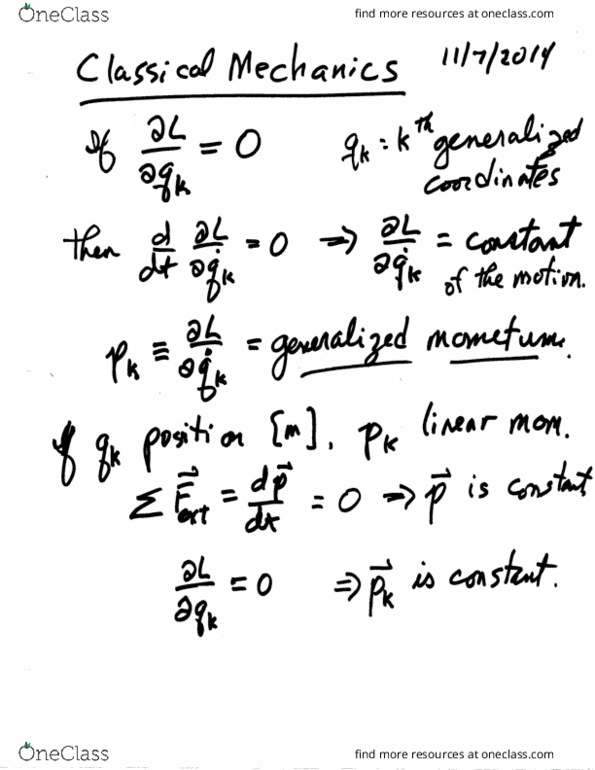 OneClass find more resources at oneclass.com
Classical Mechanics 11/7/2014
If ∂L/∂q_k = 0 q_k : k^th generalized
coordinates
then d/dt ∂L/∂q̇_k = 0 ⇒ ∂L/∂q̇_k = constant
of the motion.
p_k ≡ ∂L/∂q̇_k = generalized mometum.
If q_k position [m], p_k linear mom.
∑ F⃗_ext = dp⃗/dt = 0 ⇒ p⃗ is constant
∂L/∂q_k = 0 ⇒ p⃗_k is constant.
OneClass find more resources at oneclass.com